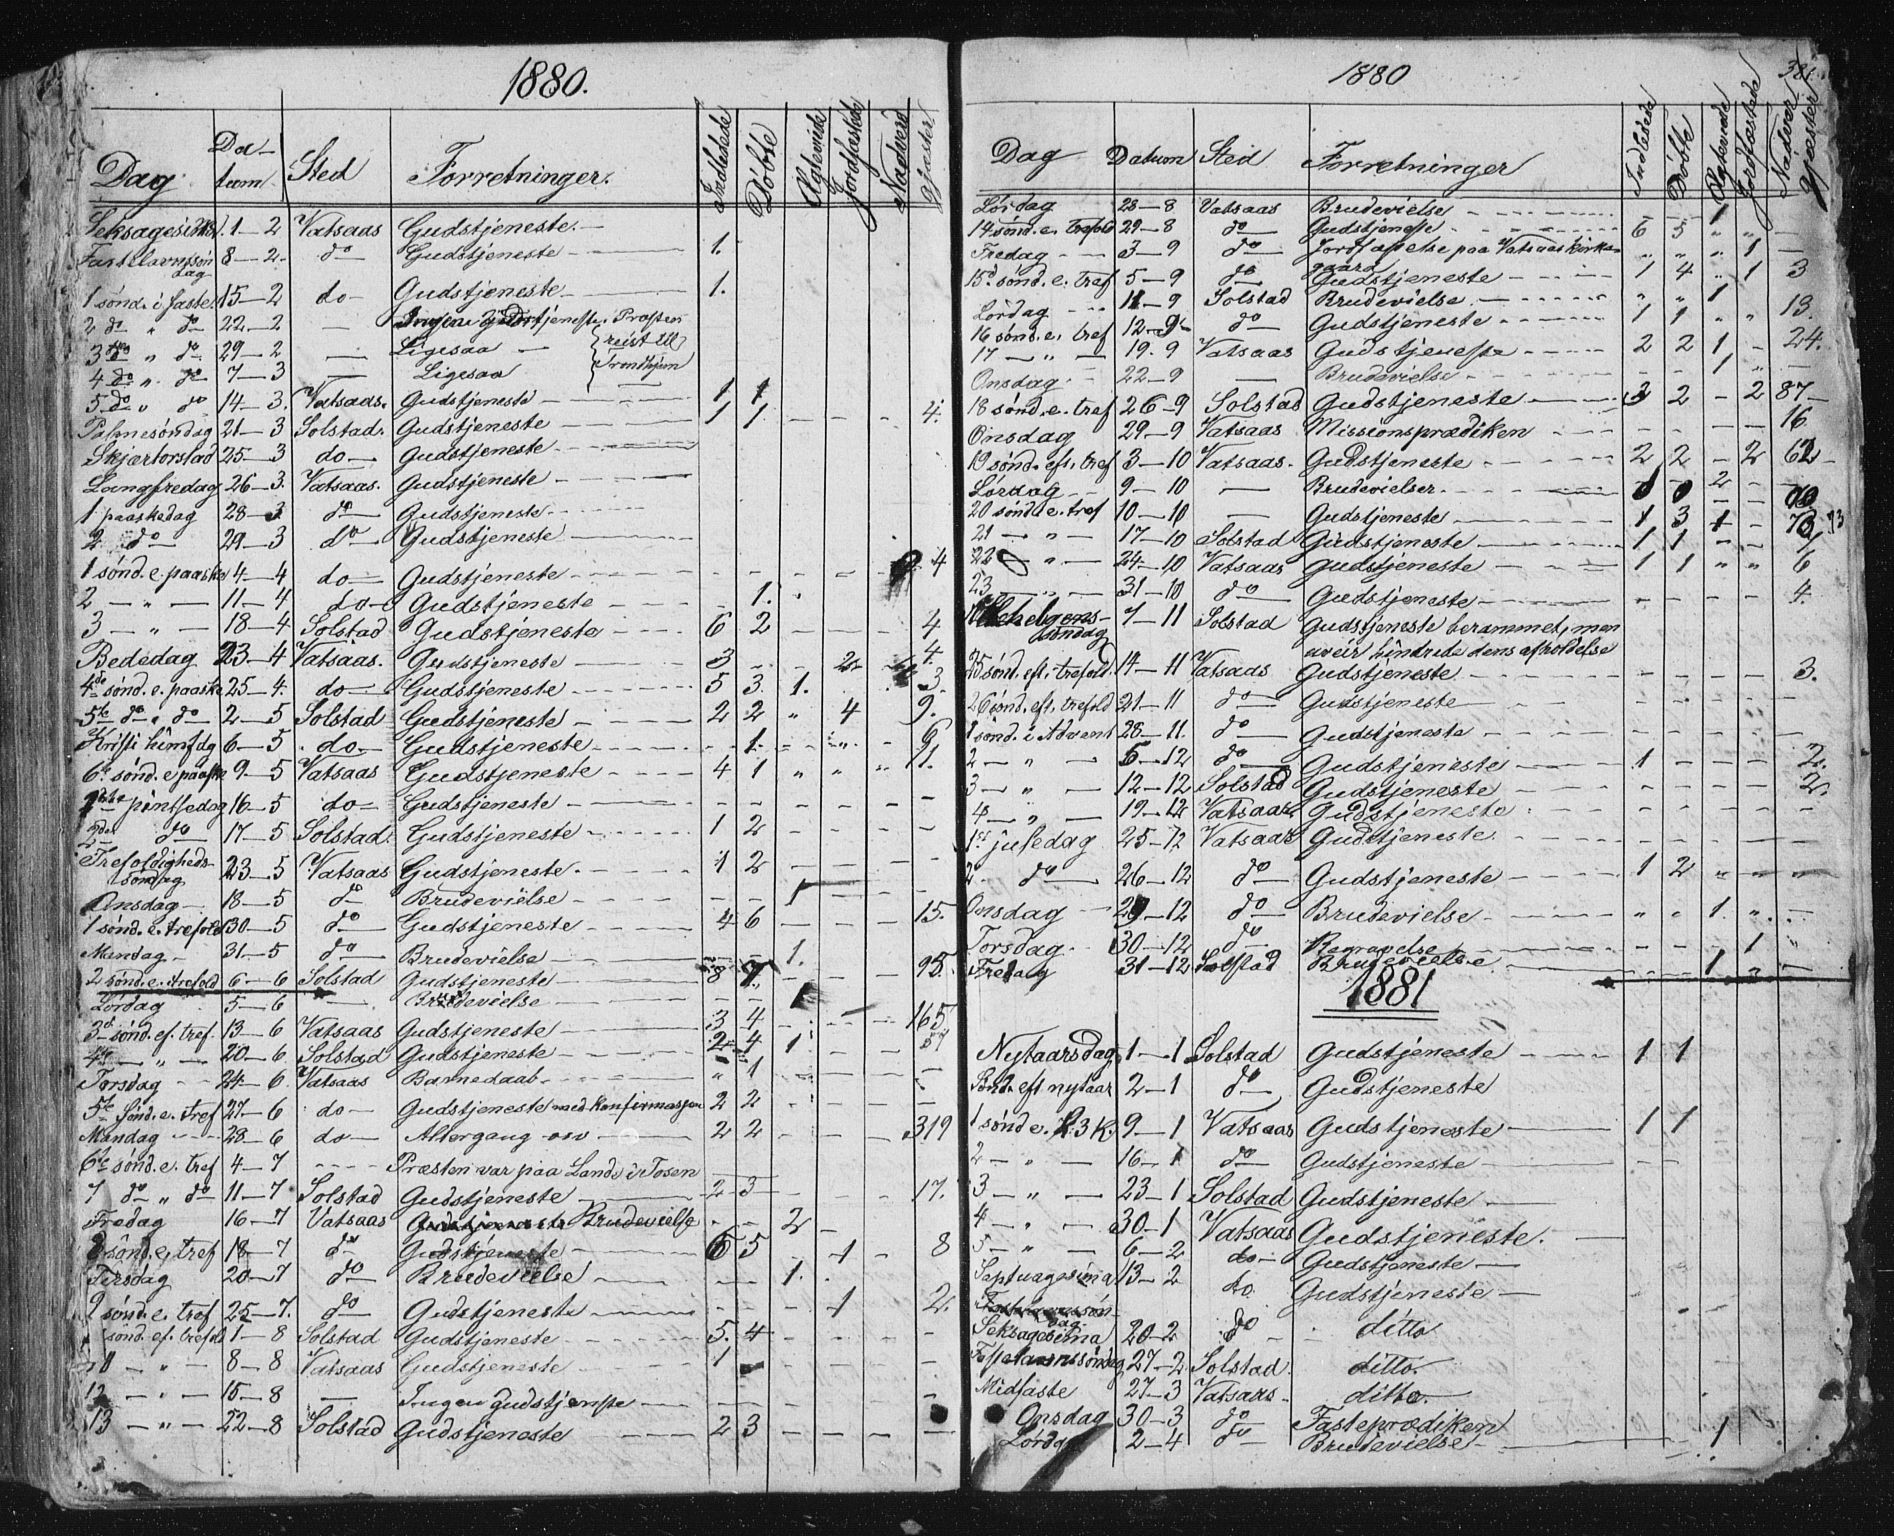 1880.
Dag Da- tum Sted Forretninger. Indledede Döbte Ægteviede Jordfæstede Nadverd gjæster
Seksagesima 1-2 Vatsaas Gudstjeneste.
Fastelavnssön 8-2 do Gudstjeneste 1.
dag
1 sönd. i faste. 15-2 do Gudstjeneste 1.
2 do " do 22-2 — Ingen Gudstjeneste. Præsten
3 do " do 29-2 — Ligesaa — reist til
4 do " do 7-3 — Ligesaa Trondhjem
5 do " do 14-3. Vatsaas. Gudstjeneste 1 1
Palmesöndag 21-3 Solstad. Gudstjeneste 1 1 - - - 4.
Skjærtorsdad 25-3 do Gudstjeneste
Langfredag 26-3. Vatsaas. Gudstjeneste
1 paaskedag 28-3 do Gudstjeneste
2 do 29-3 do Gudstjeneste
1 sönd. e. paaske 4-4 do Gudstjeneste - 4
2 — " — 11-4 do Gudstjeneste 1.
3 — " — 18-4 Solstad Gudstjeneste 6 2 4
Bededag 23-4 Vatsaas. Gudstjeneste 3 - - 2 4.
4de sönd. e. paaske 25-4. do Gudstjeneste 5 3 1. 3.
5te do " do 2-5 Solstad Gudstjeneste 2 2 " 4 9.
Kristi himfdg 6-5 do Gudstjeneste - 1. - " 6
6te sönd. e paaske 9-5 Vatsaas Gudstjeneste 4 1 " " " 11.
1ste pintsedag 16-5 do Gudstjeneste
2den do 17-5 Solstad. Gudstjeneste 1 2
Trefoldigheds- 23-5 Vatsaas Gudstjeneste. 1 2
söndag
Onsdag 18-5 do Brudevielse 1
1 sönd. e. trefold 30-5 do Gudstjeneste 4 6 15.
Mandag 31-5 do Brudevielse 1.
2 sönd. e. trefold 6-6 Solstad Gudstjeneste 8 7 95.
Lördag 5-6 — Brudevielse 1
3d sönd. ef. tref. 13-6 Vatsaas Gudstjeneste 3 4 165
4de — " — 20-6 Solstad Gudstjeneste 2 4 1 57
Torsdag 24-6. Vatsaas Barnedaab " 1
5te Sönd. e. tref 27-6 do Gudstjeneste med konfirmasjon 2 2
Mandag 28-6 do Altergang osv 2 2 319
6te sönd. e. tref 4-7 Præsten var paa Lande i Tosen
7 do " do 11-7 Solstad Gudstjeneste 2 3 17.
Fredag 16-7 Vatsaas Brudevielse 2
8 sönd. e. tref 18-7 do Gudstjeneste 6 5 1 8
Tirsdag 20-7 do Brudevielse 1.
9 sönd. e. tref 25-7. do Gudstjeneste 1 2.
sönd. ef. trefold 1-8 Solstad Gudstjeneste 5. 4
11 — " — 8-8 Vatsaas Gudstjeneste 1
12 — " — 15-8 — Ingen gudstjeneste
13 — " — 22-8 Solstad Gudstjeneste 2 3
1880 381.
Dag Datum Sted Forretninger Indledede Döbte Ægteviede Jordfæstede Nadver gjæster
Lördag 28-8 Vatsaas Brudevielse 1
14 sönd. e. trefold 29-8 do Gudstjeneste 6 5 " "
Fredag 3-9 do Jordfæstelse paa Vatsaas kirke- " " " 1
gaard
15d sönd. e. tref 5-9 do Gudstjeneste 1 4 " 1 3
Lördag 11-9 Solstad Brudevielse " " 1
16 sönd. e. tref 12-9 do Gudstjeneste 1 1 " " 13.
17 — " — 19-9 Vatsaas Gudstjeneste 2 2 1 - 24.
Onsdag 22-9 — Brudevielse 1 "
18 sönd. e. tref 26-9 Solstad Gudstjeneste 3 2 - 2 87
Onsdag 29-9 Vatsaas Missionsprædiken 16
19 sönd. eft. tref 3-10 Vatsaas. Gudstjeneste 2 2 - 2 62
Lördag 9-10 — Brudevielser 2
20 sönd. e. tref 10-10 — Gudstjeneste 1 3 1 - 73
21 — " — 17-10 Solstad Gudstjeneste 1 1
22 — " — 24-10 Vatsaas Gudstjeneste 1 1 " " 6
23 — " — 31-10 do Gudstjeneste 4.
Allehelgens- 7-11 Solstad Gudstjeneste berammet, men
söndag uveir hindrede dens afholdelse
25 sönd. eft. trefold. 14-11 Vatsaas Gudstjeneste 3.
26 sönd. eft. trefold 21-11 do Gudstjeneste
1 sönd. i Advent 28-11. do Gudstjeneste
2 — " — 5-12 do Gudstjeneste 1 2.
3 — " — 12-12 Solstad Gudstjeneste 2.
4 — " — 19-12 Vatsaas. Gudstjeneste
1ste juledag 25-12 Vatsaas Gudstjeneste.
2. do 26-12 do Gudstjeneste 1 2 " " "
Onsdag 29-12 do Brudevielse " " 1. "
Torsdag 30-12 do Begravelse 1 "
Fredag 31-12 Solstad Brudevielse 1
1881
Nytaarsdag 1-1 Solstad Gudstjeneste 1 1
Sönd. eft nytaar 2-1 do Gudstjeneste
1 sönd e. H.3 K. 9-1 Vatsaas Gudstjeneste 1 1
2 — " — 16-1 do Gudstjeneste
3 — " — 23-1 Solstad Gudstjeneste
4 — " — 30-1 Vatsaas Gudstjeneste.
5 — " — 6-2 do Gudstjeneste
Septuagesima 13-2 do. Gudstjeneste
Seksagesima 20-2 do ditto
Fastelavnssöndag 27-2 Solstad. ditto.
Midfaste 27-3 Vatsaas. ditto.
Onsdag 30-3 do Fasteprædiken
Lördag 2-4 do Brudevielse 1